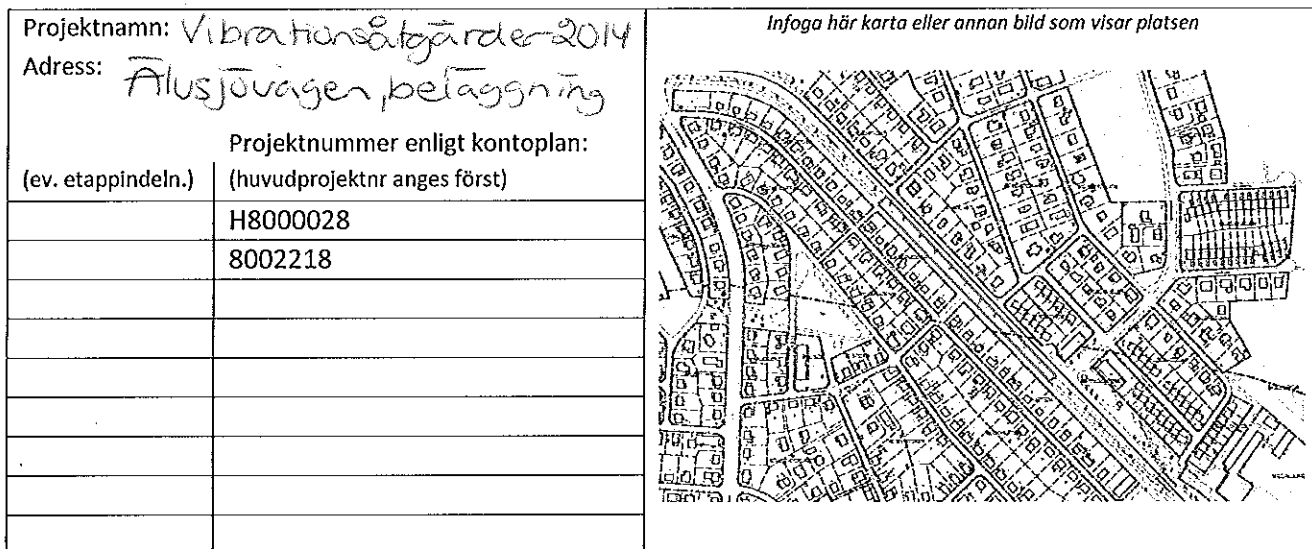 Projektnamn: Vibrationsåtgärder 2014
Adress: Älusjövägen, beläggning
Projektnummer enligt kontoplan:
(ev. etappindeln.) (huvudprojektnr anges först)
H8000028
8002218
Infoga här karta eller annan bild som visar platsen